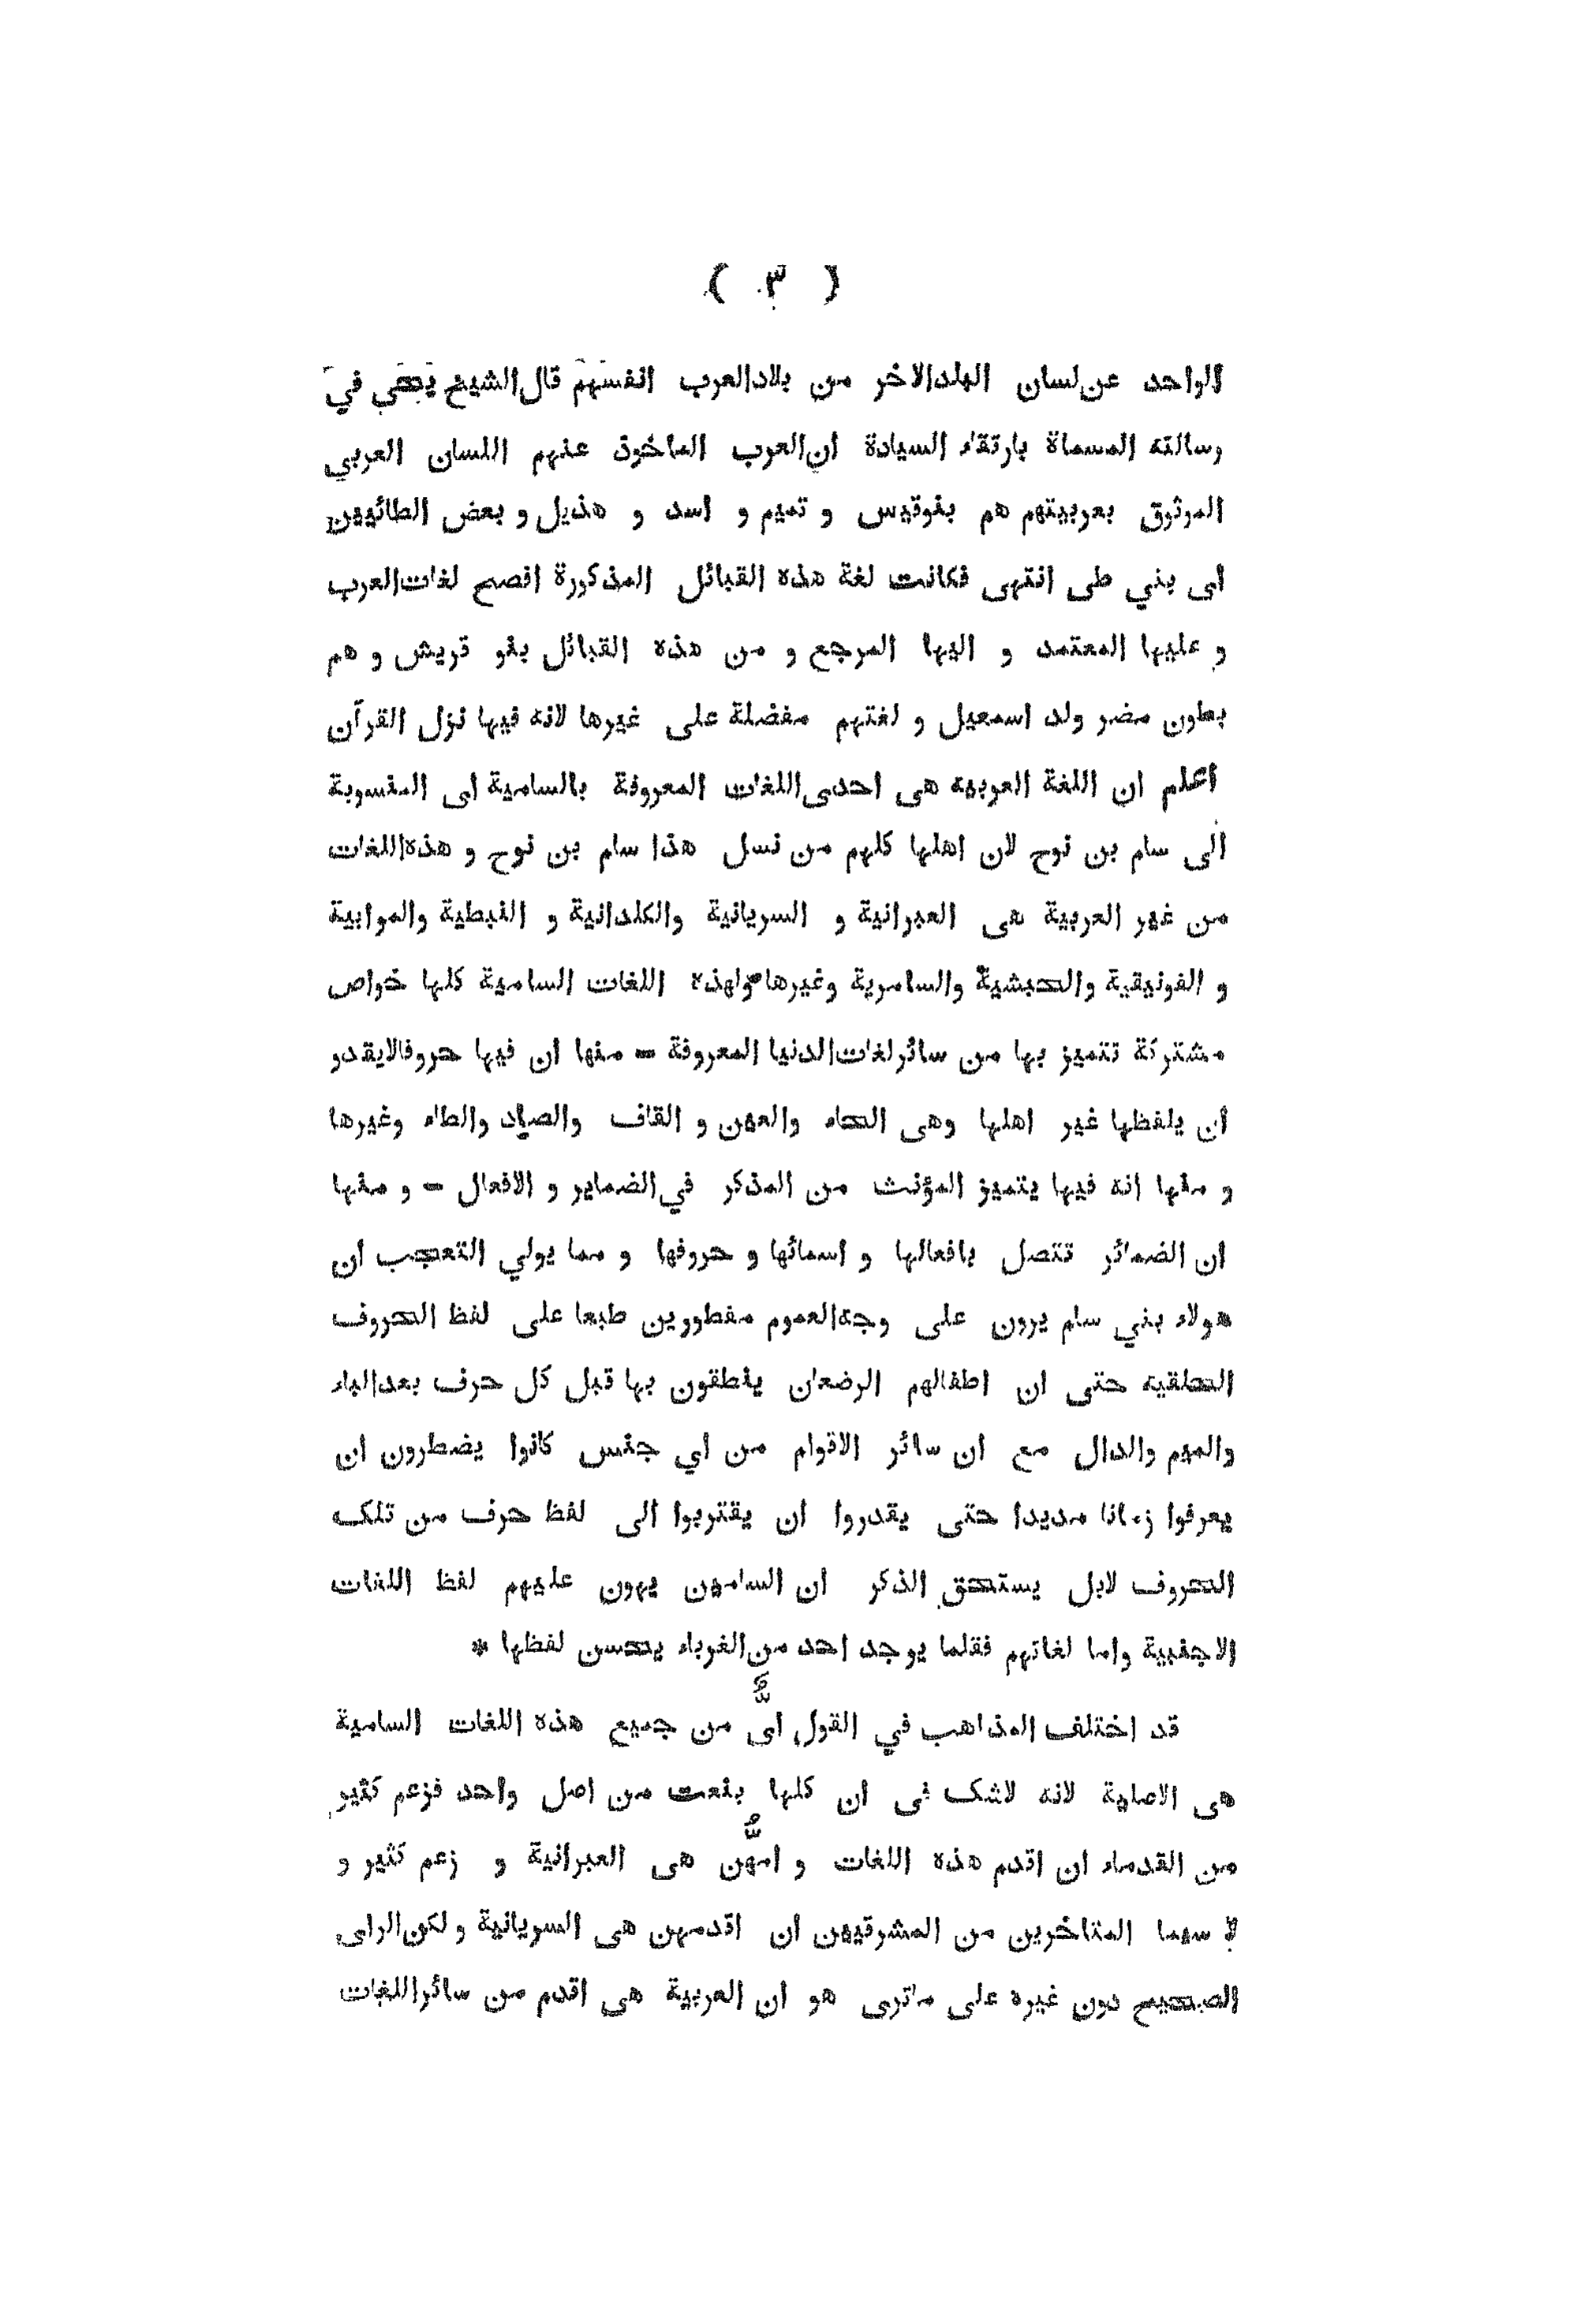 ( ٣ )
الواحد عن لسان البلد الاخر من بلاد العرب انفسهم قال الشيخ يحيى في
رسالته المسماة بارتقاء السيادة ان العرب الماخوذ عنهم اللسان العربي
الموثوق بعربيتهم هم بنو قيس و تميم و اسد و هذيل و بعض الطائيين
اى بني طى انتهى فكانت لغة هذه القبائل المذكورة افصح لغات العرب
و عليها المعتمد و اليها المرجع و من هذه القبائل بنو قريش و هم
بطون مضر ولد اسمعيل و لغتهم مفضلة على غيرها لانه فيها نزل القرآن
اعلم ان اللغة العربيه هى احدى اللغات المعروفة بالسامية اى المنسوبة
الى سام بن نوح لان اهلها كلهم من نسل هذا سام بن نوح و هذه اللغات
من غير العربية هى العبرانية و السريانية والكلدانية و النبطية والموابية
و الفونيقية والحبشية والسامرية وغيرها ولهذه اللغات السامية كلها خواص
مشتركة تتميز بها من سائر لغات الدنيا المعروفة = منها ان فيها حروفا لا يقدو
ان يلفظها غير اهلها وهى الحاء والعين و القاف والصاد والطاء وغيرها
و منها انه فيها يتميز المؤنث من المذكر في الضماير و الافعال = و منها
ان الضمائر تتصل بافعالها و اسمائها و حروفها و مما يولي التعجب ان
هولاء بني سام يرون على وجه العموم مفطوورين طبعا على لفظ الحروف
الحلقيه حتى ان اطفالهم الرضعان ينطقون بها قبل كل حرف بعد الباء
والميم والدال مع ان سائر الاقوام من اي جنس كانوا يضطرون ان
يعرفوا زمانا مديدا حتى يقدروا ان يقتربوا الى لفظ حرف من تلك
الحروف لابل يستحق الذكر ان الساميين يهون عليهم لفظ اللغات
الاجنبية واما لغاتهم فقلما يوجد احد من الغرباء يحسن لفظها *
قد اختلف المذاهب في القول اىُّ من جميع هذه اللغات السامية
هى الاصلية لانه لاشك فى ان كلها بنعت من اصل واحد فزعم كثير
من القدماء ان اقدم هذه اللغات و امهّن هى العبرانية و زعم كثير و
لا سيما المتاخرين من المشرقيين ان اقدمهن هى السريانية و لكن الراى
الصحيح دون غيره على ماترى هو ان العربية هى اقدم من سائر اللغات